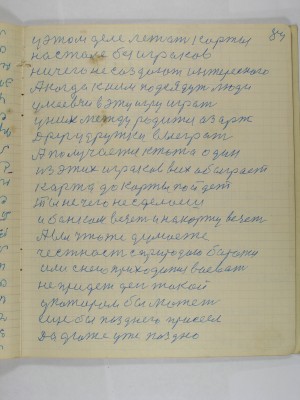 84
и этом деле лежат карты
на столе без игроков
ничего не создают интересного
А когда к ним подойдут люди
умеючи в эту игру играт
у них между родится азарт
друг у дружки выеграт
А получается кто то один
из этих игроков всех обыграет
карта до карты пойдет
ты ничего не сделаеш
и банком везет и на карту везет
А вы что же думаеже
честност с природою
или с нею приходится воеват
не придет ден такой
в котором был может
еще бы позднего
да даже уже поздно